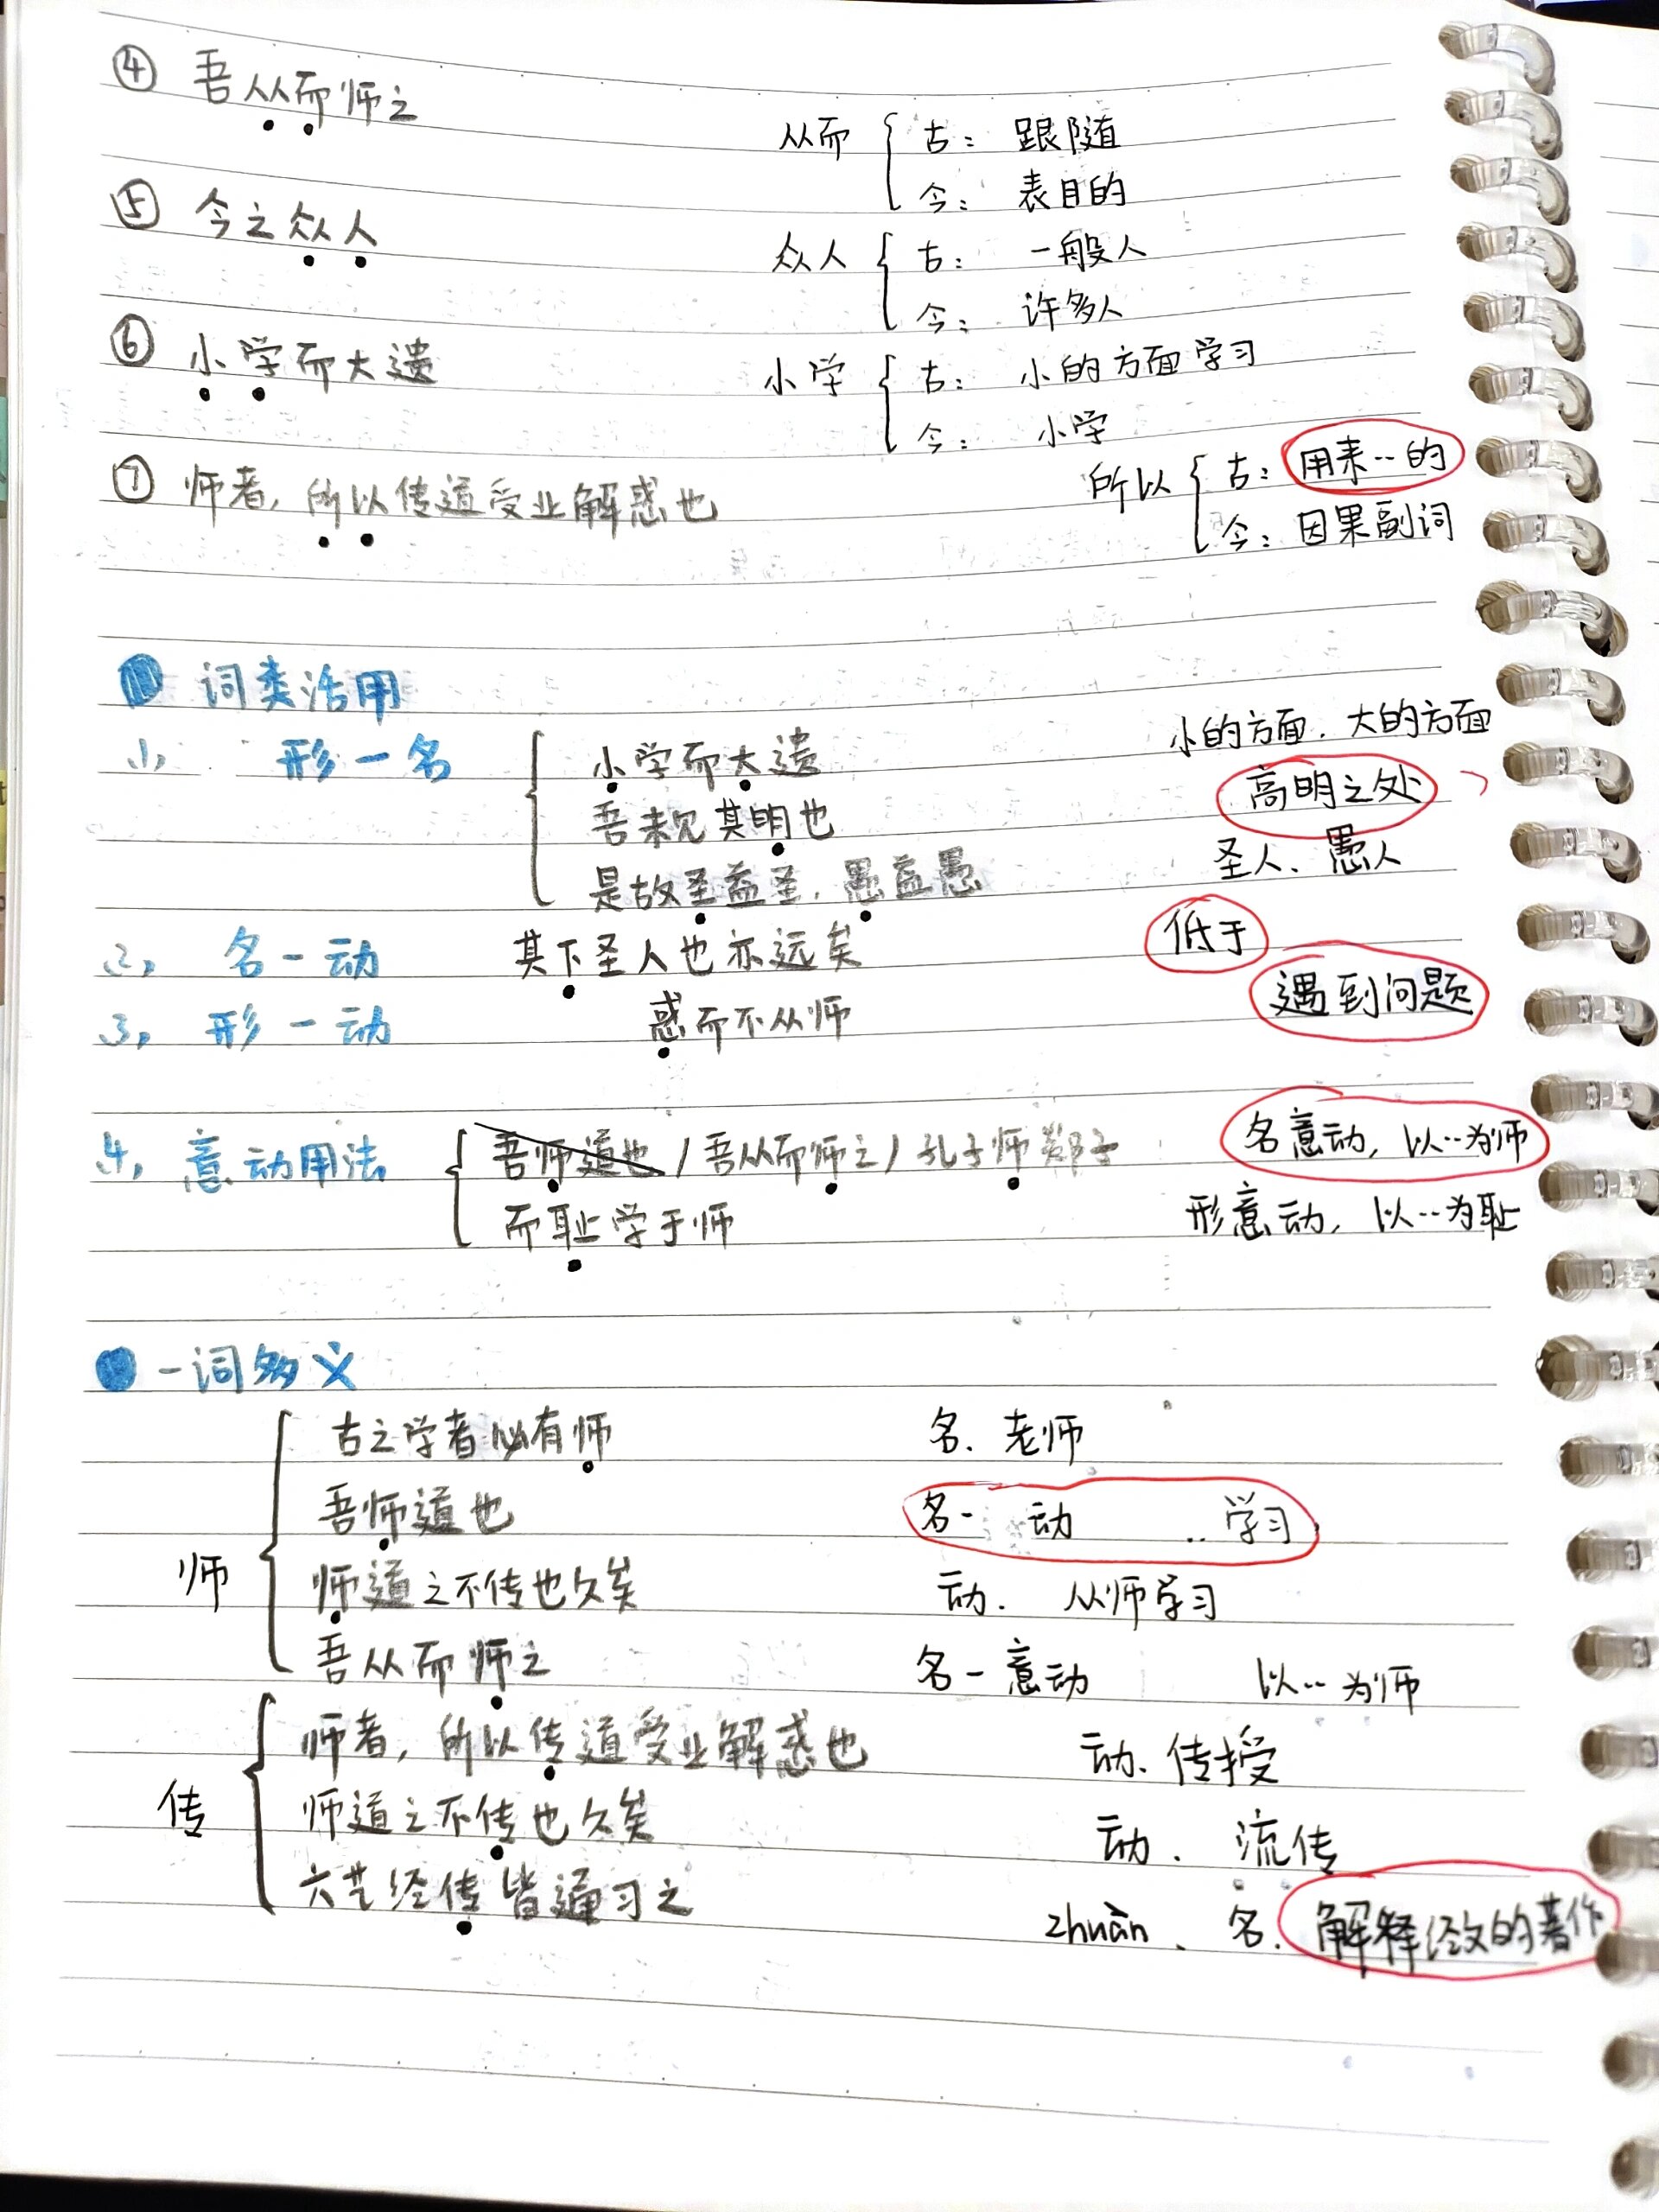 ④ 吾从而师之 从而 { 古: 跟随
今: 表目的
⑤ 今之众人 众人 { 古: 一般人
今: 许多人
⑥ 小学而大遗 小学 { 古: 小的方面学习
今: 小学
⑦ 师者,所以传道受业解惑也 所以 { 古: 用来··的
今: 因果副词
词类活用
1, 形-名 { 小学而大遗 小的方面.大的方面
吾未见其明也 高明之处
是故圣益圣,愚益愚 圣人、愚人
2, 名-动 其下圣人也亦远矣 低于
3, 形-动 惑而不从师 遇到问题
4, 意动用法 { 吾师道也 / 吾从而师之 / 孔子师郯子 名意动, 以··为师
而耻学于师 形意动, 以··为耻
一词多义
师 { 古之学者必有师 名. 老师
吾师道也 名- 动 ..学习
师道之不传也久矣 动. 从师学习
吾从而师之 名-意动 以··为师
传 { 师者,所以传道受业解惑也 动.传授
师道之不传也久矣 动. 流传
六艺经传皆通习之 zhuàn、名. 解释经文的著作